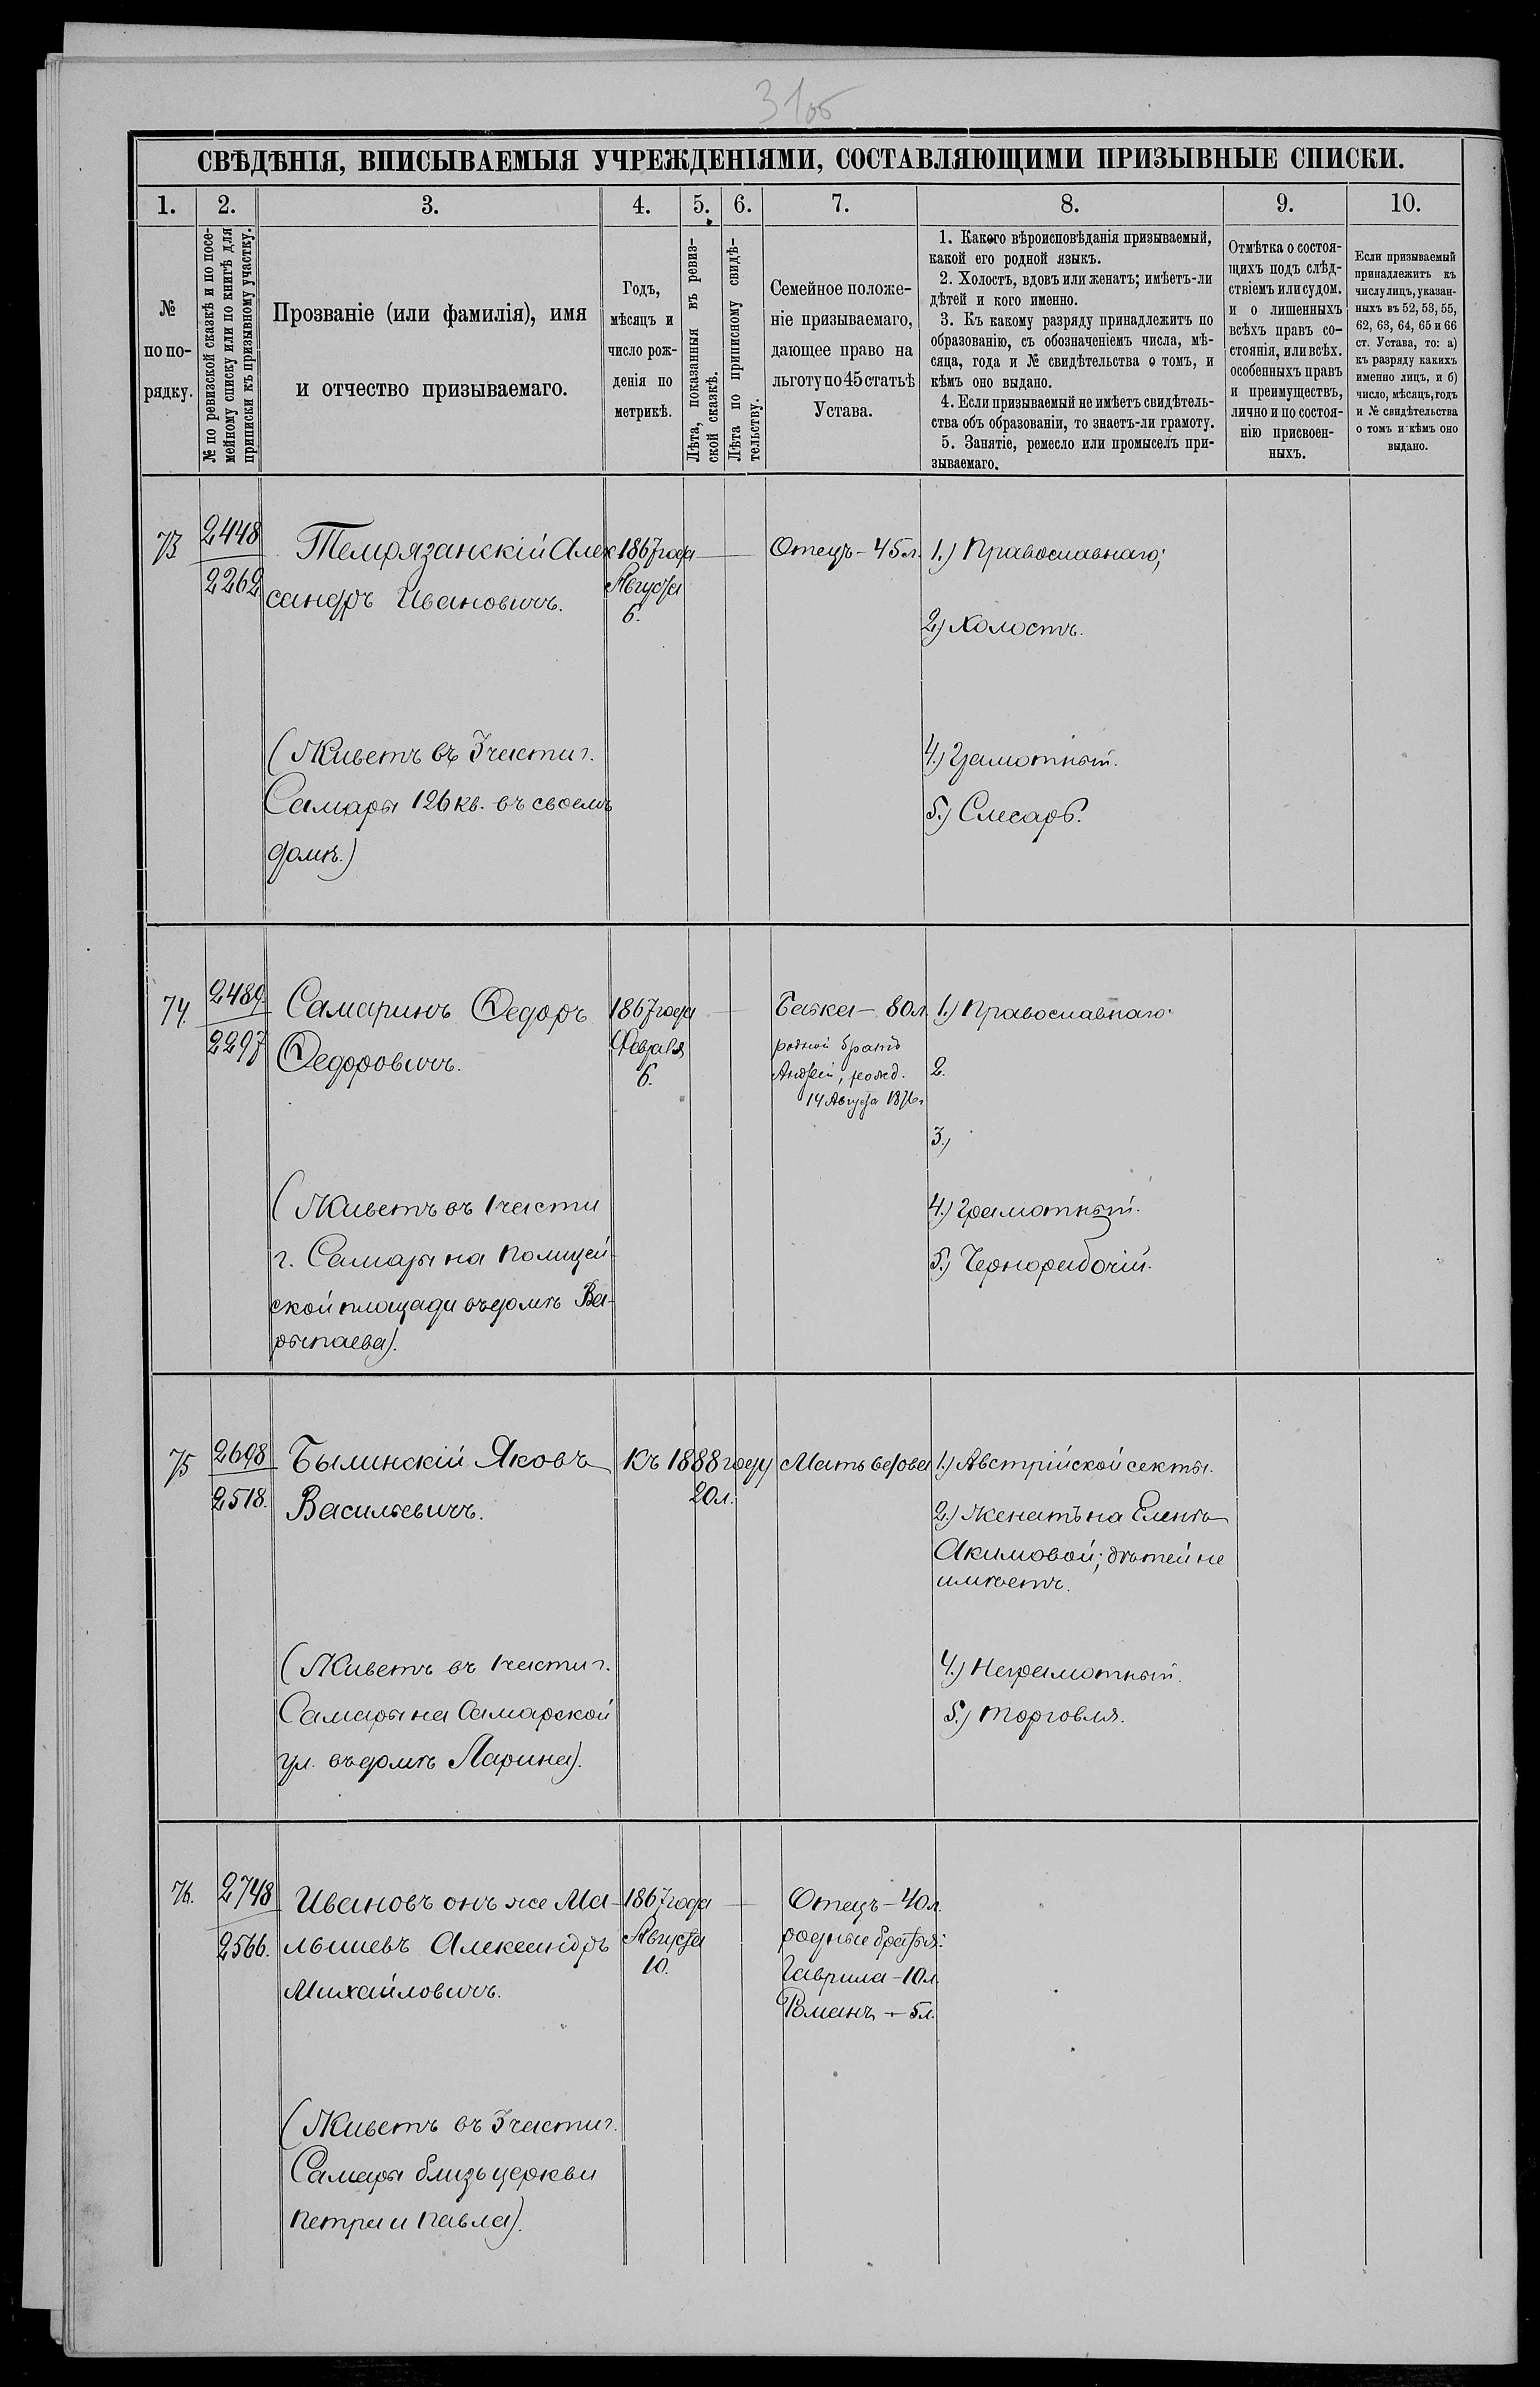 31об
СВѢДѢНІЯ, ВПИСЫВАЕМЫЯ УЧРЕЖДЕНІЯМИ, СОСТАВЛЯЮЩИМИ ПРИЗЫВНЫЕ СПИСКИ.
1. 2. 3. 4. 5. 6. 7. 8. 9. 10.
№
по по-
рядку.
№ по ревизской сказкѣ и по посе-
мейному списку или по книгѣ для
приписки къ призывному участку.
Прозваніе (или фамилія), имя
и отчество призываемаго.
Годъ,
мѣсяцъ и
число рож-
денія по
метрикѣ.
Лѣта, показанныя въ ревиз-
ской сказкѣ.
Лѣта по приписному свидѣ-
тельству.
Семейное положе-
ніе призываемаго,
дающее право на
льготу по 45 статьѣ
Устава.
1. Какого вѣроисповѣданія призываемый,
какой его родной языкъ.
2. Холостъ, вдовъ или женатъ; имѣетъ-ли
дѣтей и кого именно.
3. Къ какому разряду принадлежитъ по
образованію, съ обозначеніемъ числа, мѣ-
сяца, года и № свидѣтельства о томъ, и
кѣмъ оно выдано.
4. Если призываемый не имѣетъ свидѣтель-
ства объ образованіи, то знаетъ-ли грамоту.
5. Занятіе, ремесло или промыселъ при-
зываемаго.
Отмѣтка о состоя-
щихъ подъ слѣд-
ствіемъ или судом.
и о лишенныхъ
всѣхъ правъ со-
стоянія, или всѣх.
особенныхъ правъ
и преимуществъ,
лично и по состоя-
нію присвоен-
ныхъ.
Если призываемый
принадлежитъ къ
числу лицъ, указан-
ныхъ въ 52, 53, 55,
62, 63, 64, 65 и 66
ст. Устава, то: а)
къ разряду какихъ
именно лицъ, и б)
число, мѣсяцъ, годъ
и № свидѣтельства
о томъ и кѣмъ оно
выдано.
73
2448
2262
Темрязанскій Алек
сандръ Ивановичъ.
(Живетъ въ 3 части г.
Самары 126 кв. въ своемъ
домѣ.)
1867 года
Августа
6.
Отецъ - 45 л.
1.) Православнаго;
2.) Холостъ.
4.) Грамотный.
5.) Слесарь.
74.
2489.
2297
Самаринъ Федоръ
Федоровичъ.
(Живетъ въ 1 части
г. Самары на Полицей-
ской площади въ домѣ Ва-
рыпаева).
1867 года
Февраля
6.
Бабка - 80 л
родной братъ
Андрей, рожд.
14 Августа 1876 г
1.) Православнаго.
2.
3.)
4.) Грамотный.
5.) Чернорабочій.
75
2698
2518.
Былинскій Яковъ
Васильевичъ.
(Живетъ въ 1 части г.
Самары на Самарской
ул. въ домѣ Ларина).
Къ 1888 году
20 л.
Мать вдова
1.) Австрійской секты.
2.) Женатъ на Еленѣ
Акимовой; дѣтей не
имѣетъ.
4.) Неграмотный.
5.) Торговля.
76.
2748
2566.
Ивановъ онъ же Ма-
лышевъ Александръ
Михайловичъ.
(Живетъ въ 3 части г.
Самары близь церкви
Петра и Павла).
1867 года
Августа
10.
Отецъ - 40 л.
родные братья:
Гаврила - 10 л.
Романъ - 5 л.